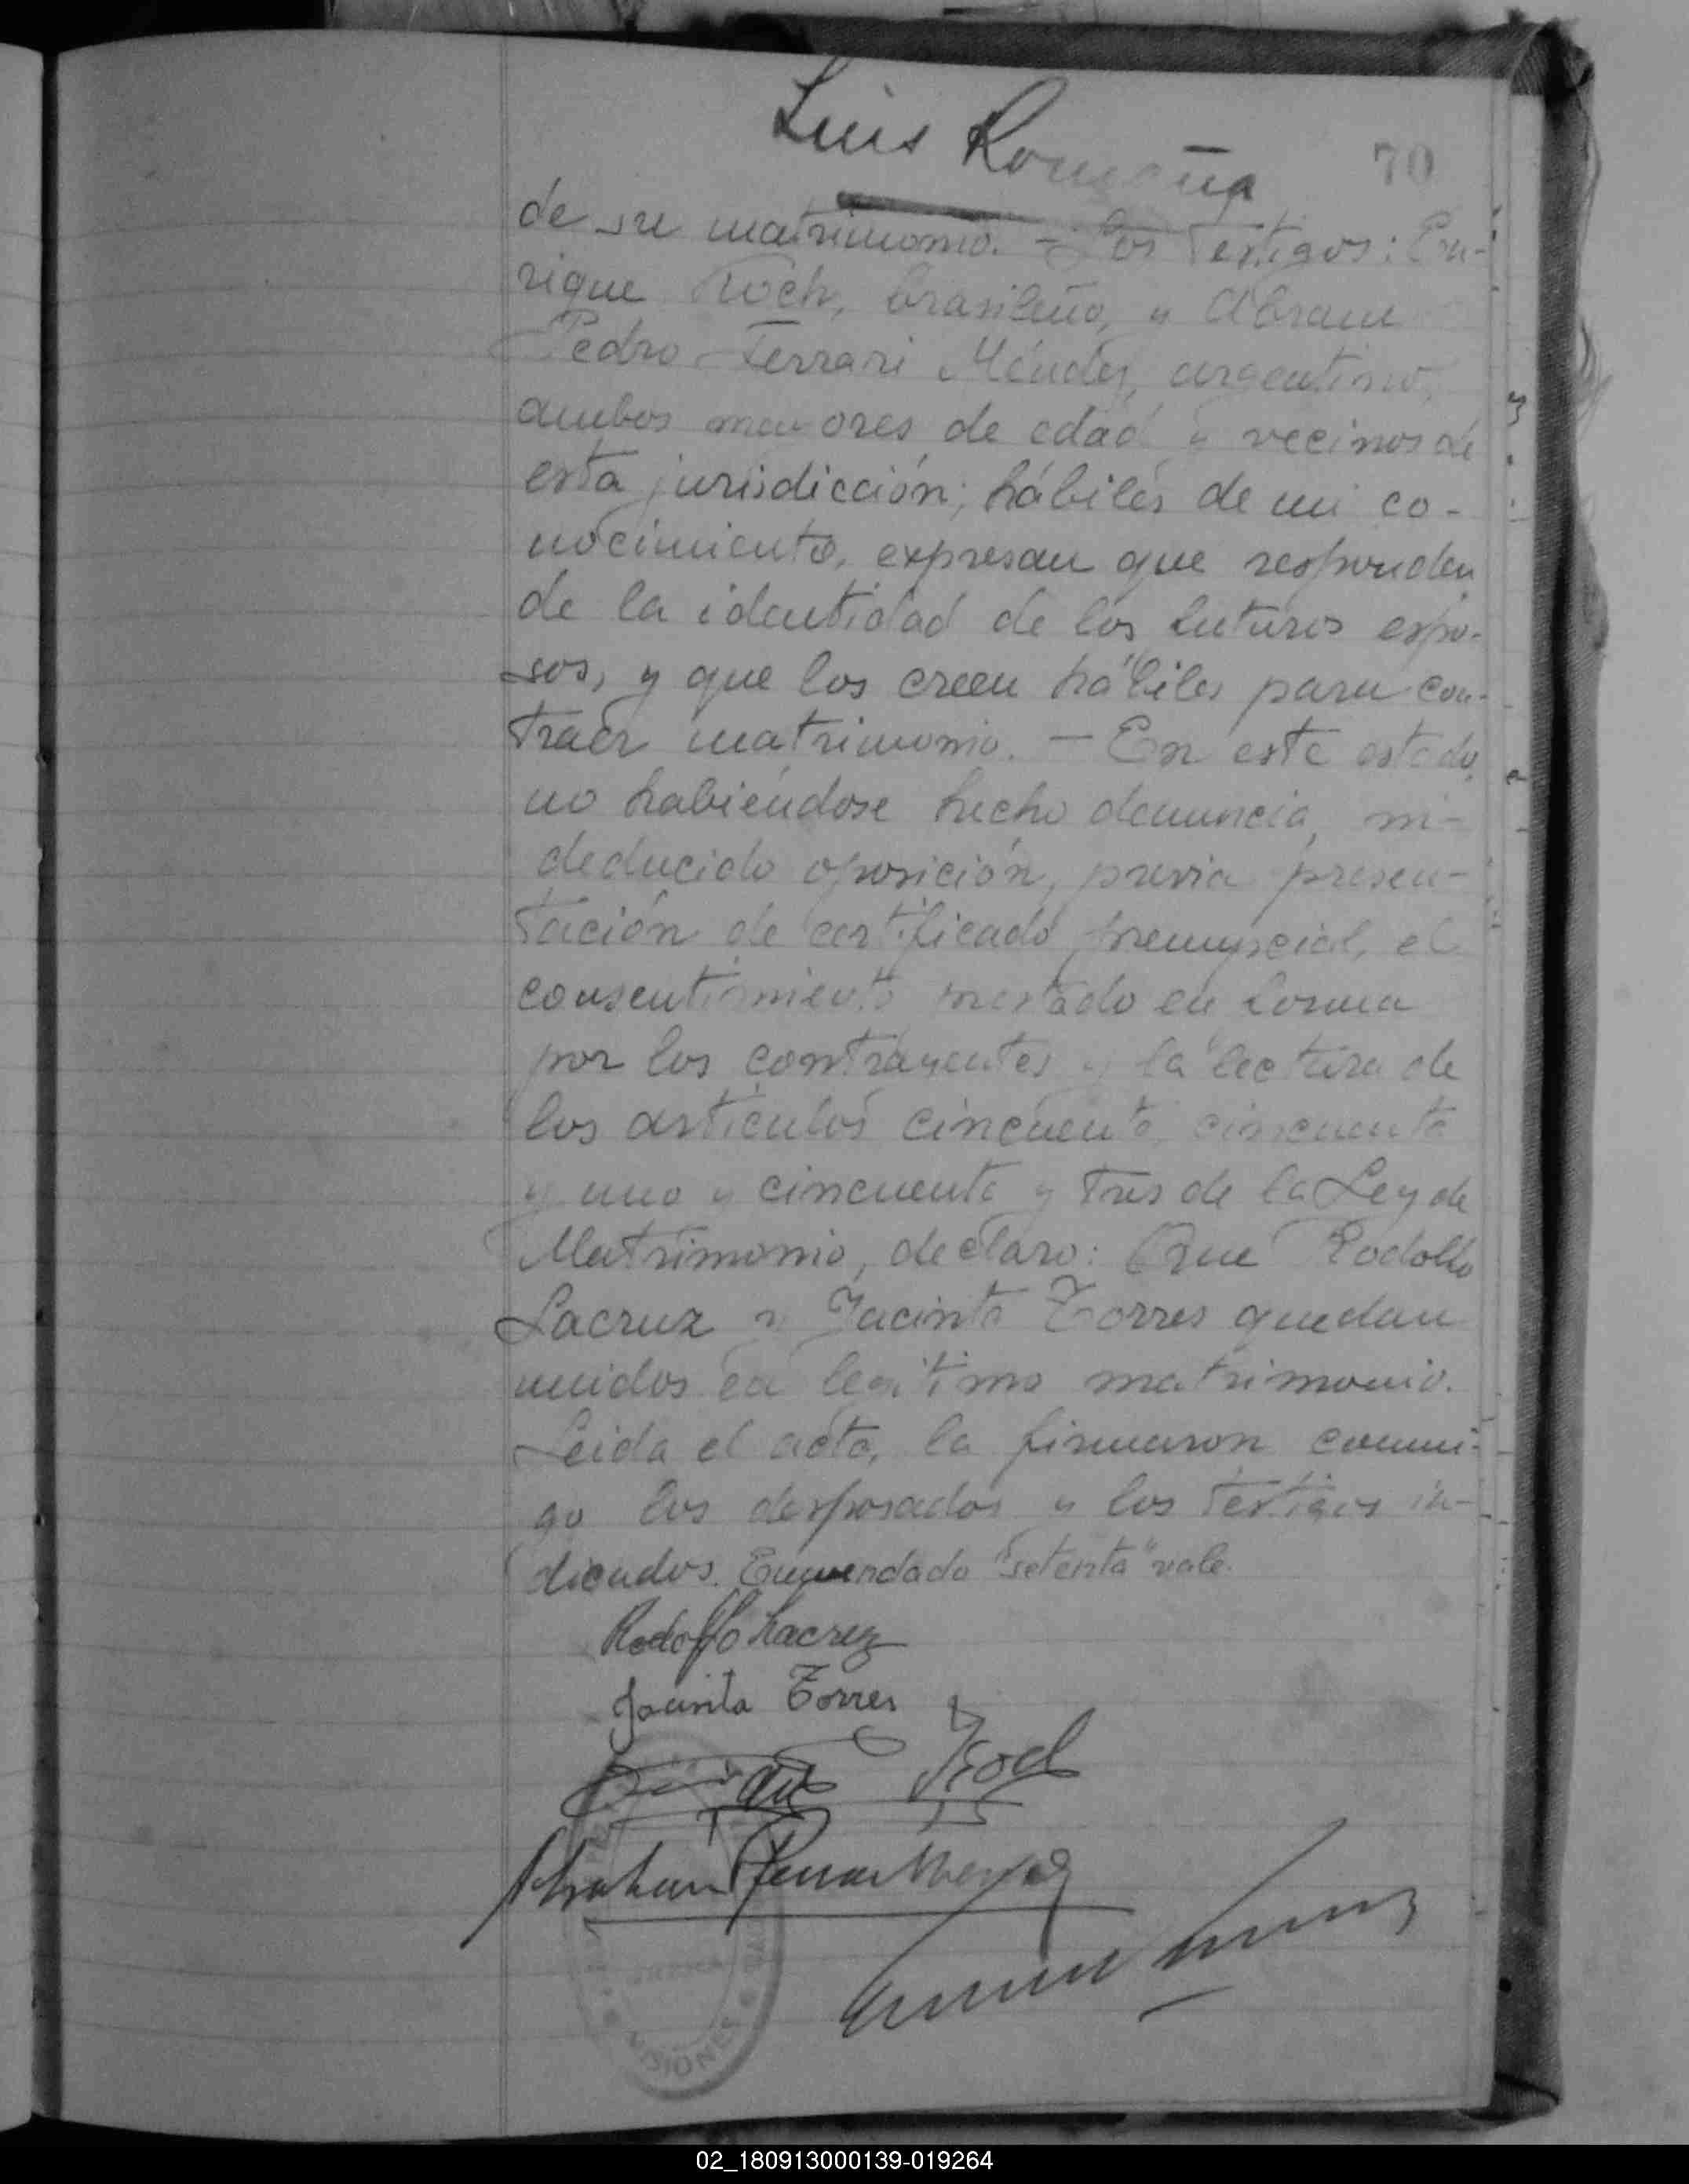 Luis Romaña
70
de su matrimonio. - Los Testigos: En-
rique Koch, brasileño, y Abram
Pedro Ferrari Méndez, argentino,
ambos mayores de edad y vecinos de
esta jurisdicción; hábiles de mi co-
nocimiento, expresan que responden
de la identidad de los futuros espo-
sos, y que los creen hábiles para con-
traer matrimonio. - En este estado,
no habiéndose hecho denuncia, ni-
deducido oposición, previa presen-
tación de certificado prenupcial, el
consentimiento prestado en forma
por los contrayentes y la lectura de
los artículos cincuenta, cincuenta
y uno y cincuenta y tres de la Ley de
Matrimonio, declaro: Que Rodolfo
Lacruz y Jacinta Torres quedan
unidos en legitimo matrimonio.
Leida el acta, la firmaron conmi-
go los desposados y los testigos in-
dicados. Enmendado "setenta" vale.
Rodolfo Lacruz
Jacinta Torres
Koch
Abraham P Ferrari Mendez
MISIONES
02_180913000139-019264